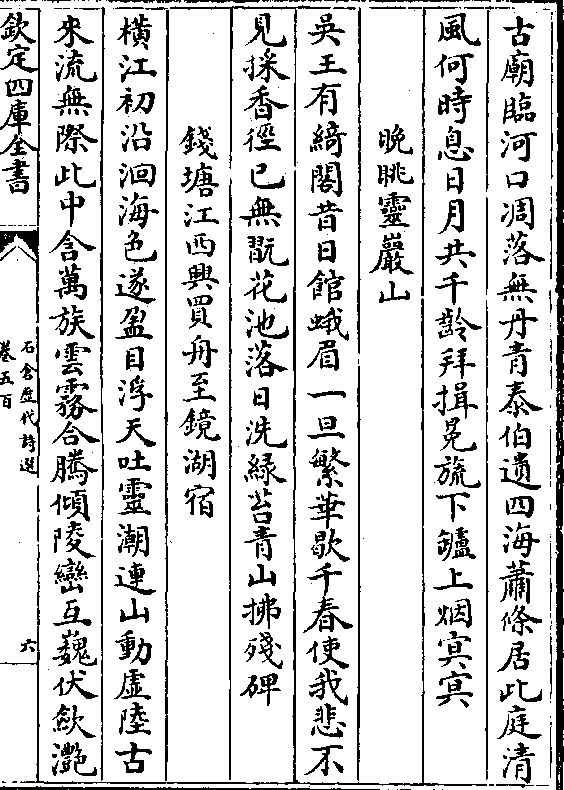 古廟臨河口凋落無丹青泰伯遺四海蕭條居此庭清
風何時息日月共千齡拜揖冕旒下鑪上烟㝠㝠
晩眺靈巖山
吳王有綺閣昔日館蛾眉一旦繁華歇千春使我悲不
見採香徑已無翫花池落日洗緑苔青山拂殘碑
錢塘江西興買舟至鏡湖宿
橫江初沿洄海色遂盈目浮天吐靈潮連山動虛陸古
來流無際此中含萬族雲霧合騰傾陵巒互巍伏歛灔
欽定四庫全書
石倉歴代詩選
卷五百
六